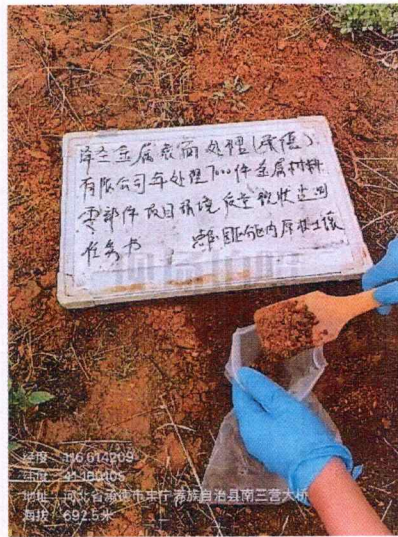 泽至金属表面处理(承德)
有限公司年处理700件金属材料
零部件项目环境质量现状监测
任务书
厂内原状土壤
经度:116.614209
纬度:41.180405
地址:河北省承德市丰宁满族自治县南三营大桥
海拔:692.5米